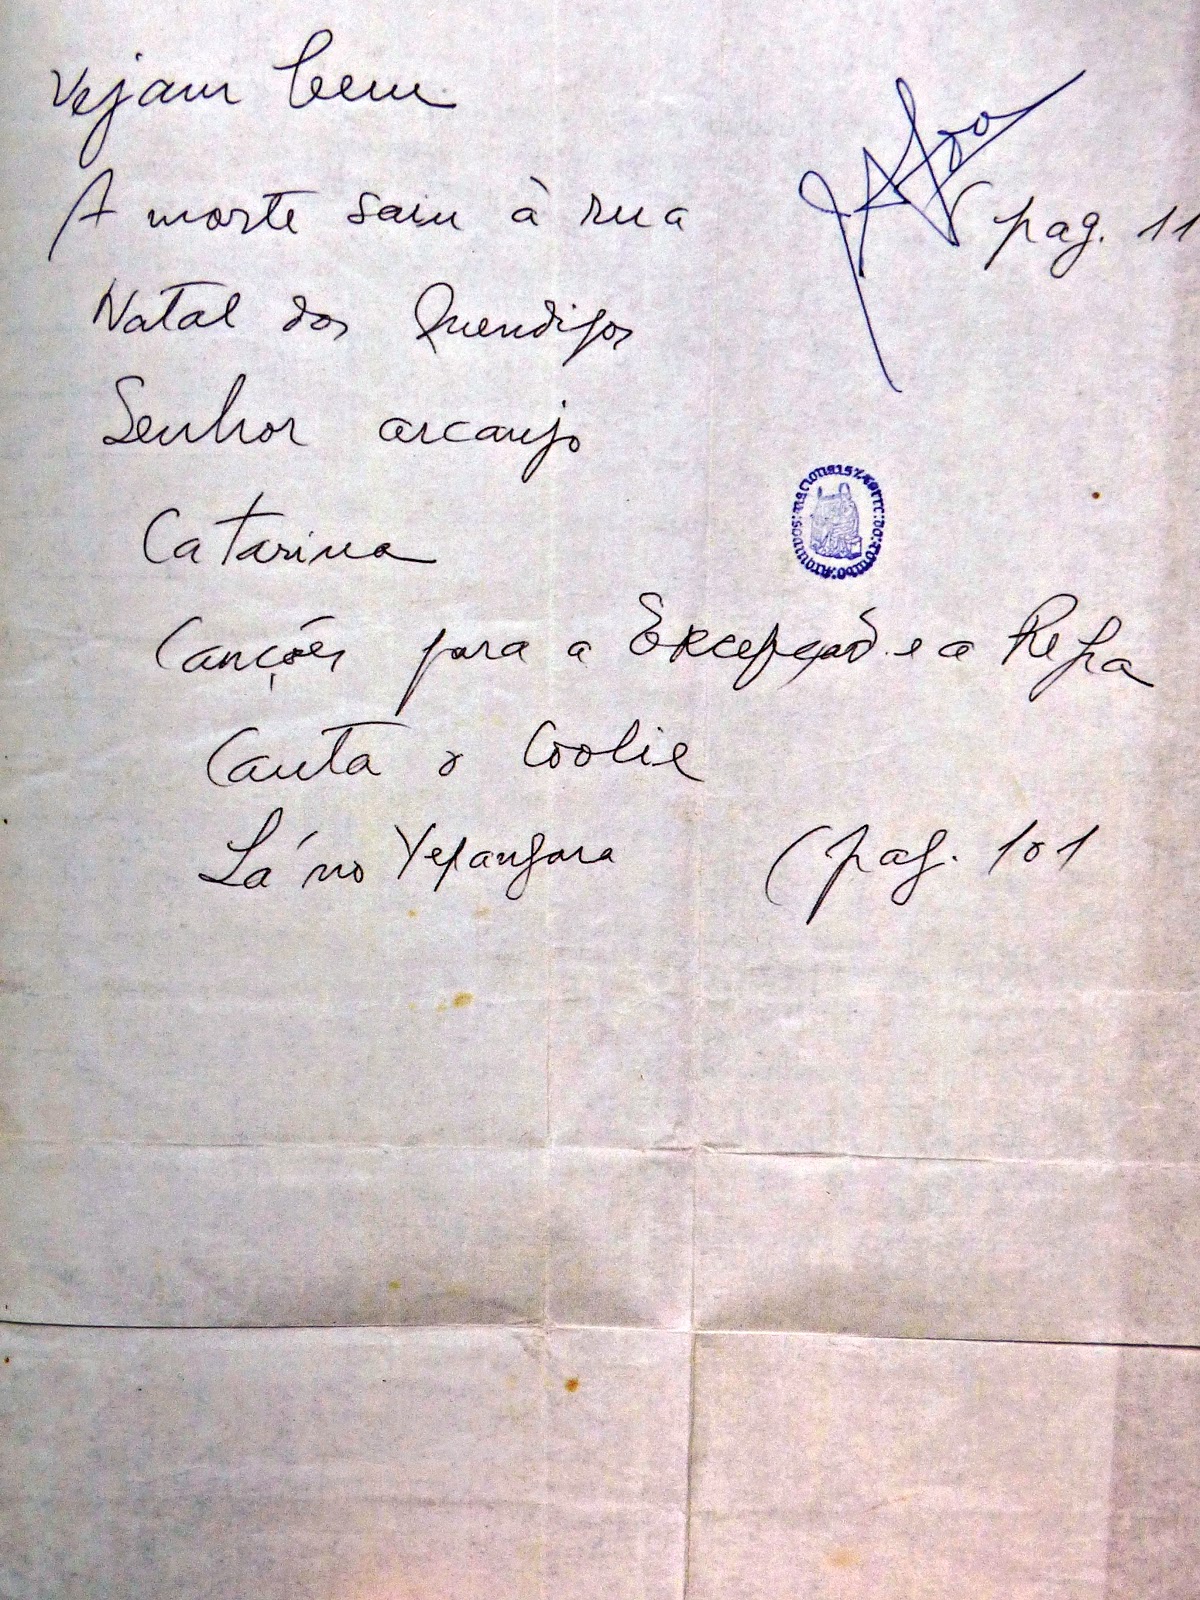 Vejam bem
A morte saiu à rua (pag. 11
Natal dos Mendigos
Senhor arcanjo
Catarina
Canções para a Excepção e a Regra
Canta o Coolie
Lá no Xepangara (pag. 101